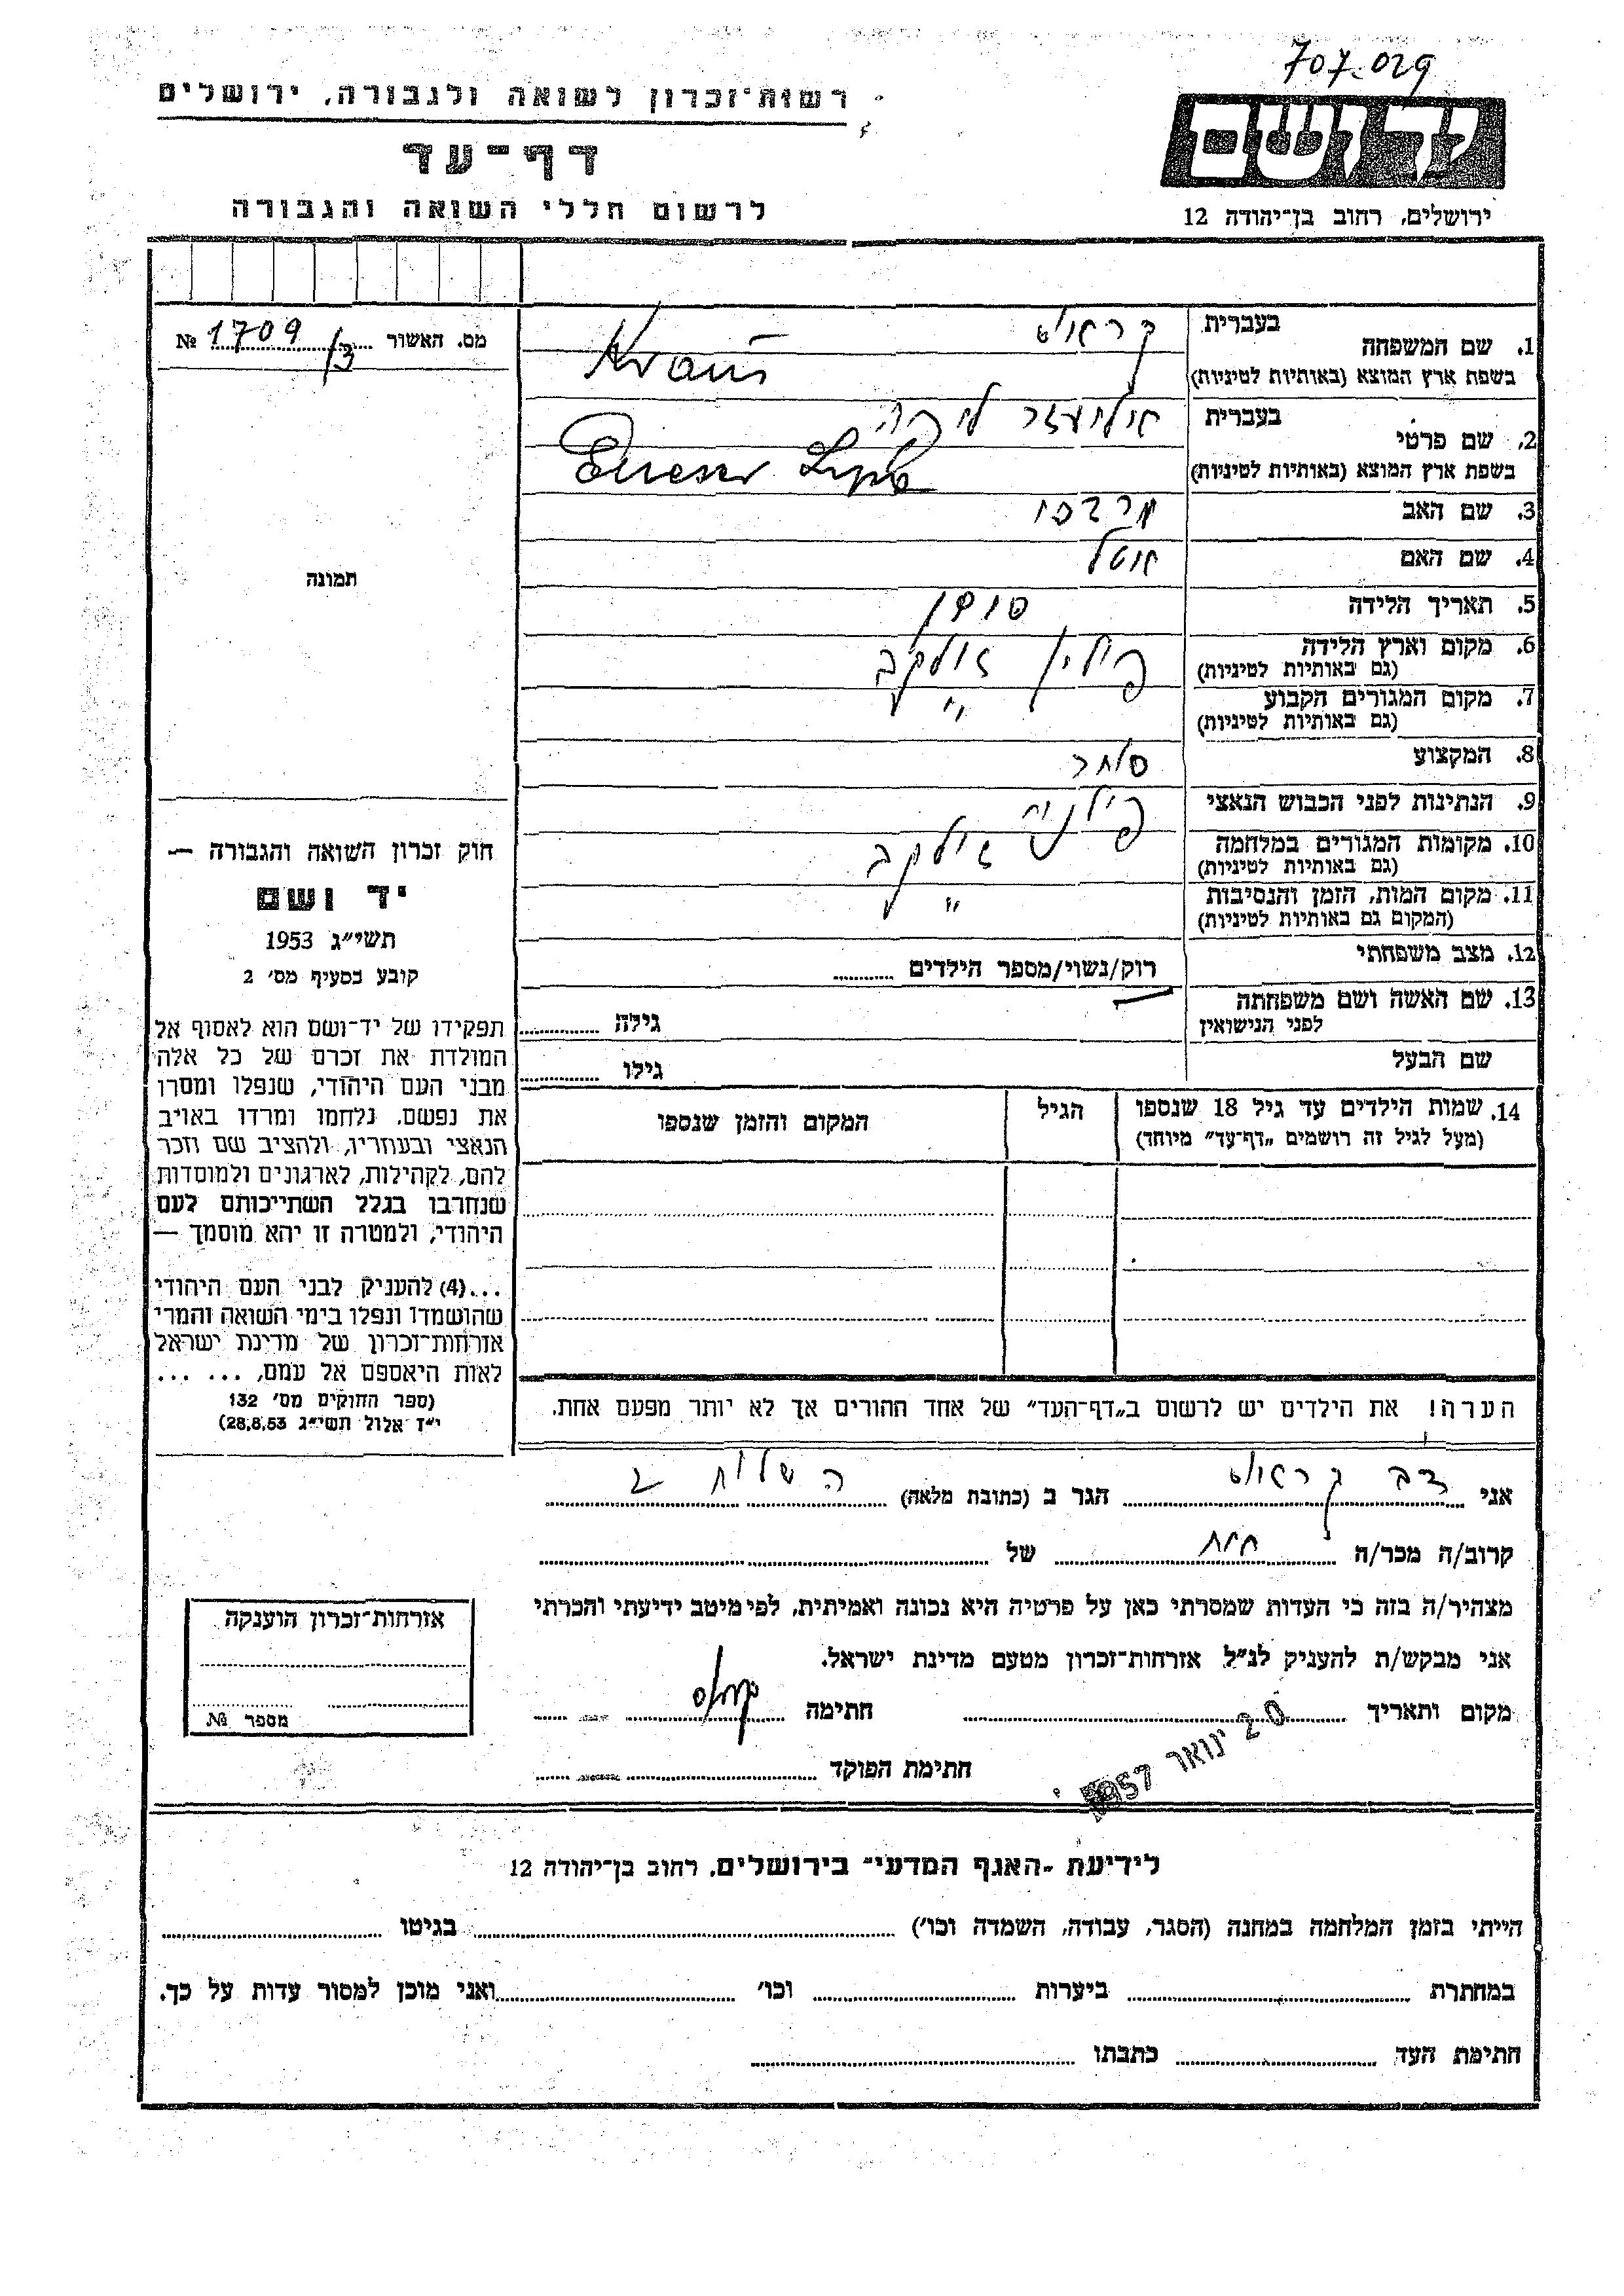 707.029
רשות־זכרון לשואה ולגבורה, ירושלים
דף־עד
לרשום חללי השואה והגבורה
יד ושם
ירושלים, רחוב בן־יהודה 12
מס. האשור 1709/3 №
תמונה
1. שם המשפחה
בעברית קראוס
בשפת ארץ המוצא (באותיות לטיניות) Kraus
2. שם פרטי
בעברית אליעזר ליפה
בשפת ארץ המוצא (באותיות לטיניות) Elieser
3. שם האב מרדכי
4. שם האם אטל
5. תאריך הלידה
6. מקום וארץ הלידה פולין זולקב
(גם באותיות לטיניות)
7. מקום המגורים הקבוע "
(גם באותיות לטיניות)
8. המקצוע סוחר
9. הנתינות לפני הכבוש הנאצי פולנית
10. מקומות המגורים במלחמה זולקב
(גם באותיות לטיניות)
11. מקום המות, הזמן והנסיבות "
(המקום גם באותיות לטיניות)
12. מצב משפחתי רוק/נשוי/מספר הילדים
13. שם האשה ושם משפחתה
לפני הנישואין
גילה
שם הבעל גילו
14. שמות הילדים עד גיל 18 שנספו הגיל המקום והזמן שנספו
(מעל לגיל זה רושמים „דף־עד” מיוחד)
הערה! את הילדים יש לרשום ב„דף־העד” של אחד ההורים אך לא יותר מפעם אחת.
חוק זכרון השואה והגבורה —
יד ושם
תשי״ג 1953
קובע בסעיף מס׳ 2
תפקידו של יד־ושם הוא לאסוף אל
המולדת את זכרם של כל אלה
מבני העם היהודי, שנפלו ומסרו
את נפשם, נלחמו ומרדו באויב
הנאצי ובעוזריו, ולהציב שם וזכר
להם, לקהילות, לארגונים ולמוסדות
שנחרבו בגלל השתייכותם לעם
היהודי, ולמטרה זו יהא מוסמך —
...(4) להעניק לבני העם היהודי
שהושמדו ונפלו בימי השואה והמרי
אזרחות־זכרון של מדינת ישראל
לאות היאספם אל עמם, ... ...
(ספר החוקים מס׳ 132
י״ז אלול תשי״ג 28.8.53)
אני דב קראוס הגר ב (כתובת מלאה) השלוח 2
קרוב/ה מכר/ה אח של
מצהיר/ה בזה כי העדות שמסרתי כאן על פרטיה היא נכונה ואמיתית, לפי מיטב ידיעתי והכרתי
אני מבקש/ת להעניק לנ״ל אזרחות־זכרון מטעם מדינת ישראל.
מקום ותאריך 20 ינואר 1957 חתימה
חתימת הפוקד
אזרחות־זכרון הוענקה
מספר №
לידיעת ־האגף המדעי־ בירושלים, רחוב בן־יהודה 12
הייתי בזמן המלחמה במחנה (הסגר, עבודה, השמדה וכו׳) בגיטו
במחתרת ביערות וכו׳ ואני מוכן למסור עדות על כך.
חתימת העד כתבתו